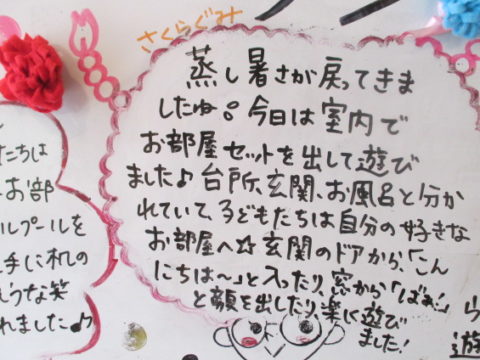 さくらぐみ
蒸し暑さが戻ってきま
したね。今日は室内で
お部屋セットを出して遊び
ました♪台所、玄関、お風呂と分か
れていて、子どもたちは自分の好きな
お部屋へ☆玄関のドアから、「こん
にちは〜」と入ったり、窓から「ばぁ!」
と顔を出したり、楽しく遊び
ました!
たちは
お部
ルプールを
手に机の
ような笑
れました♪
遊